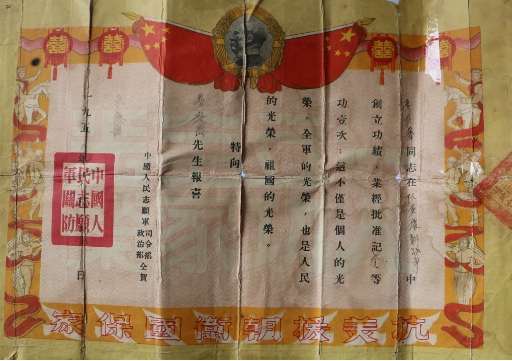 同志在
中
創立功績，業經批准記 等
功壹次；這不僅是個人的光
榮，全軍的光榮，也是人民
的光榮，祖國的光榮。
特向
先生報喜
中國人民志願軍司令部政治部仝賀
一九五 年 日
中國人民志願軍關防
抗美援朝衛國保家